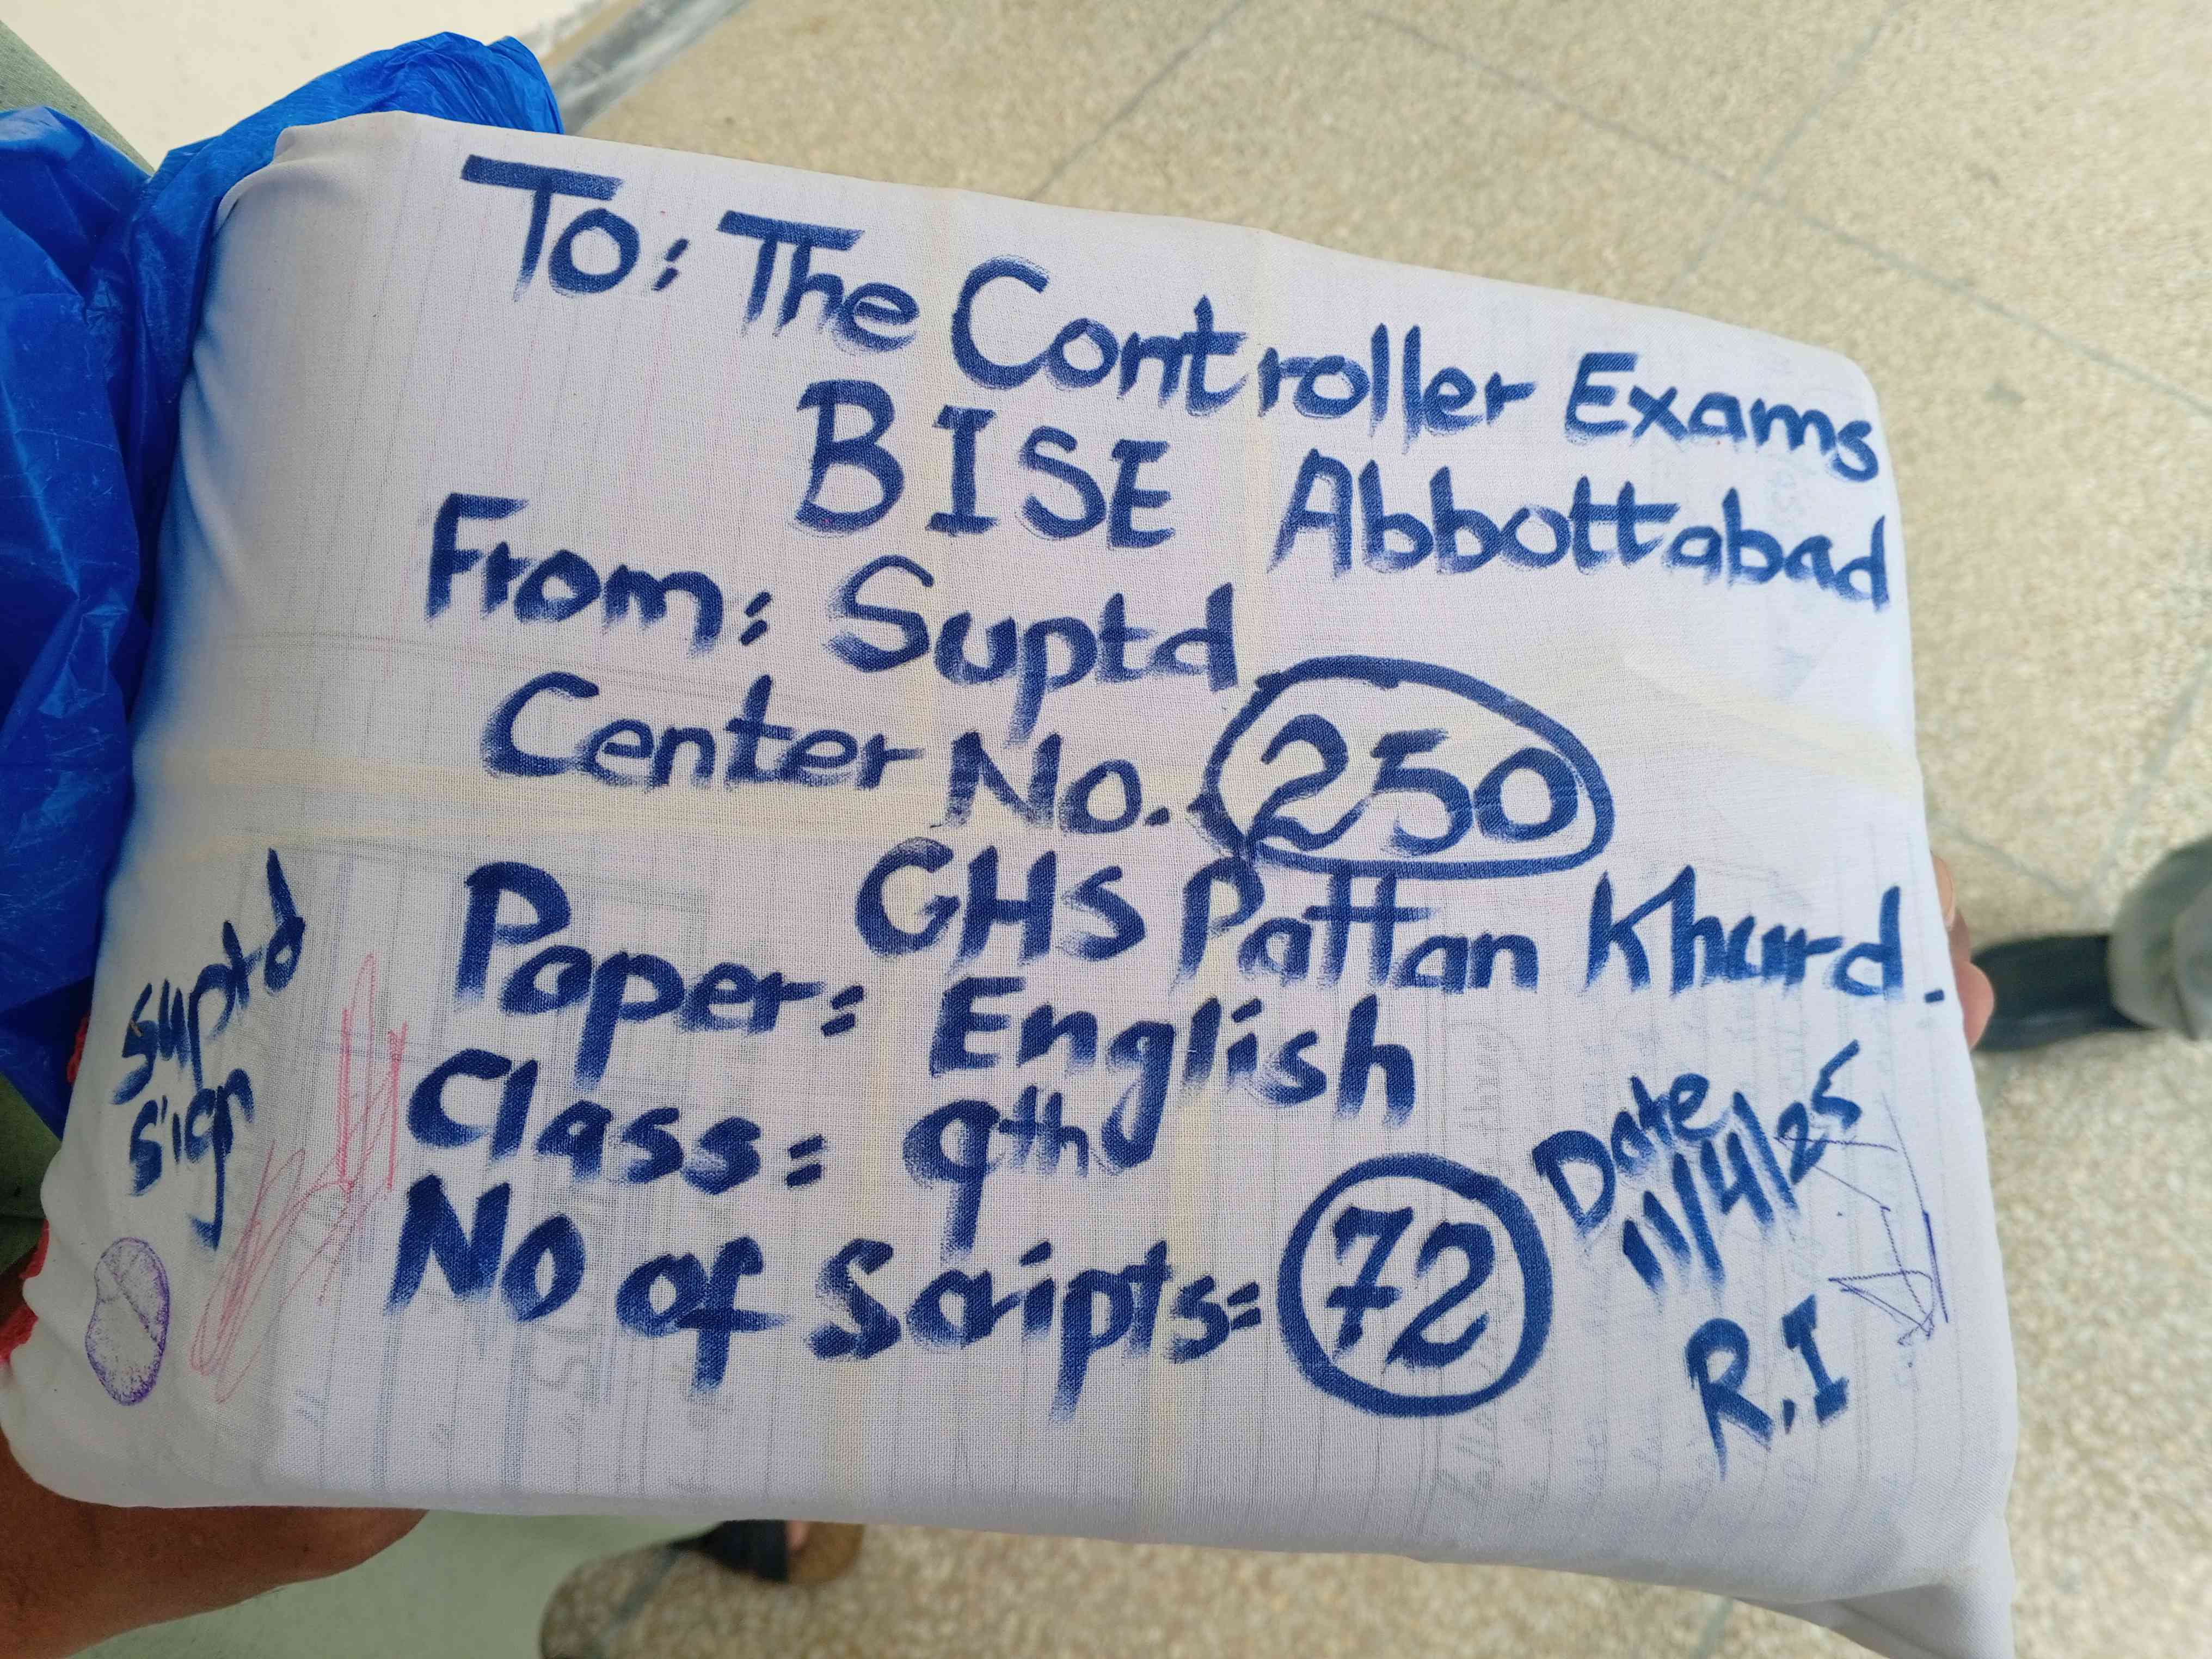 To: The Controller Exams
BISE Abbottabad
From: Suptd
Center No. 250
GHS Pattan Khurd.
Paper: English
Class: 9th
No of Scripts: 72
Suptd
Sign
Date
11/4/25
R.I